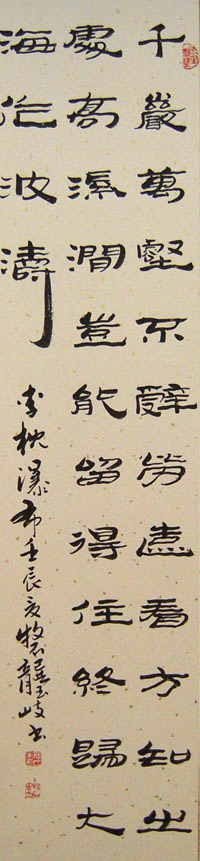 千巖萬壑不辭勞遠看方知出
處高溪澗豈能留得住終歸大
海作波濤
李忱瀑布壬辰夏牧石岐书